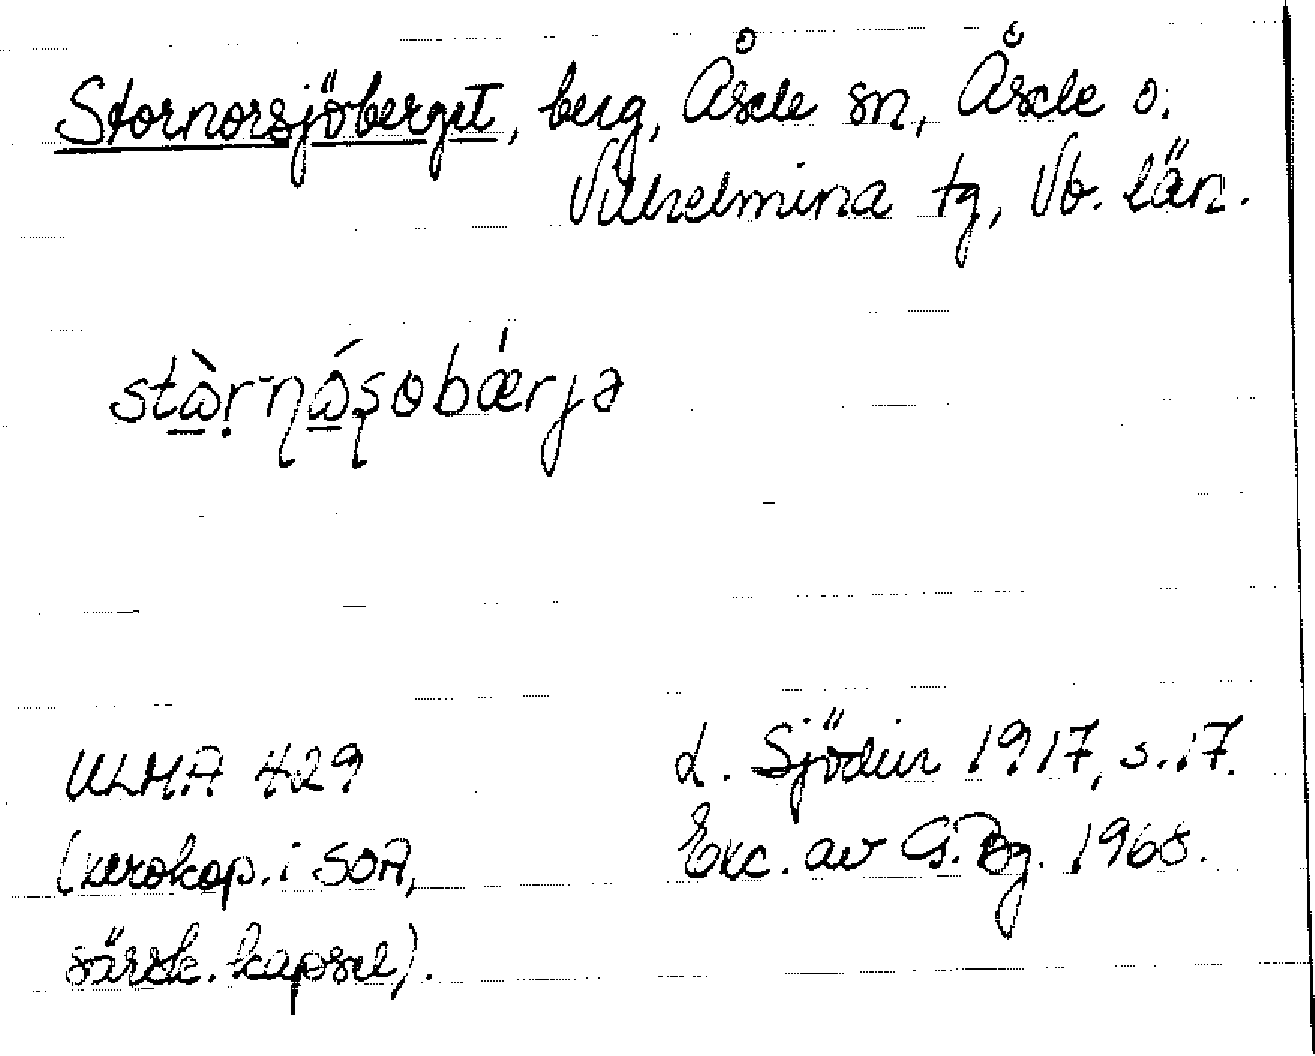 Stornorsjöberget, berg, Åsele sn, Åsele o.
Vilhelmina tg, Vb. län.
stὼ̱ṛ-ɳώ̱ʂobǽrjə
ULMA 429
(xerokop. i SOA,
särsk. kapsel).
L. Sjödin 1917, s. 17.
Exc. av G. Bg. 1968.